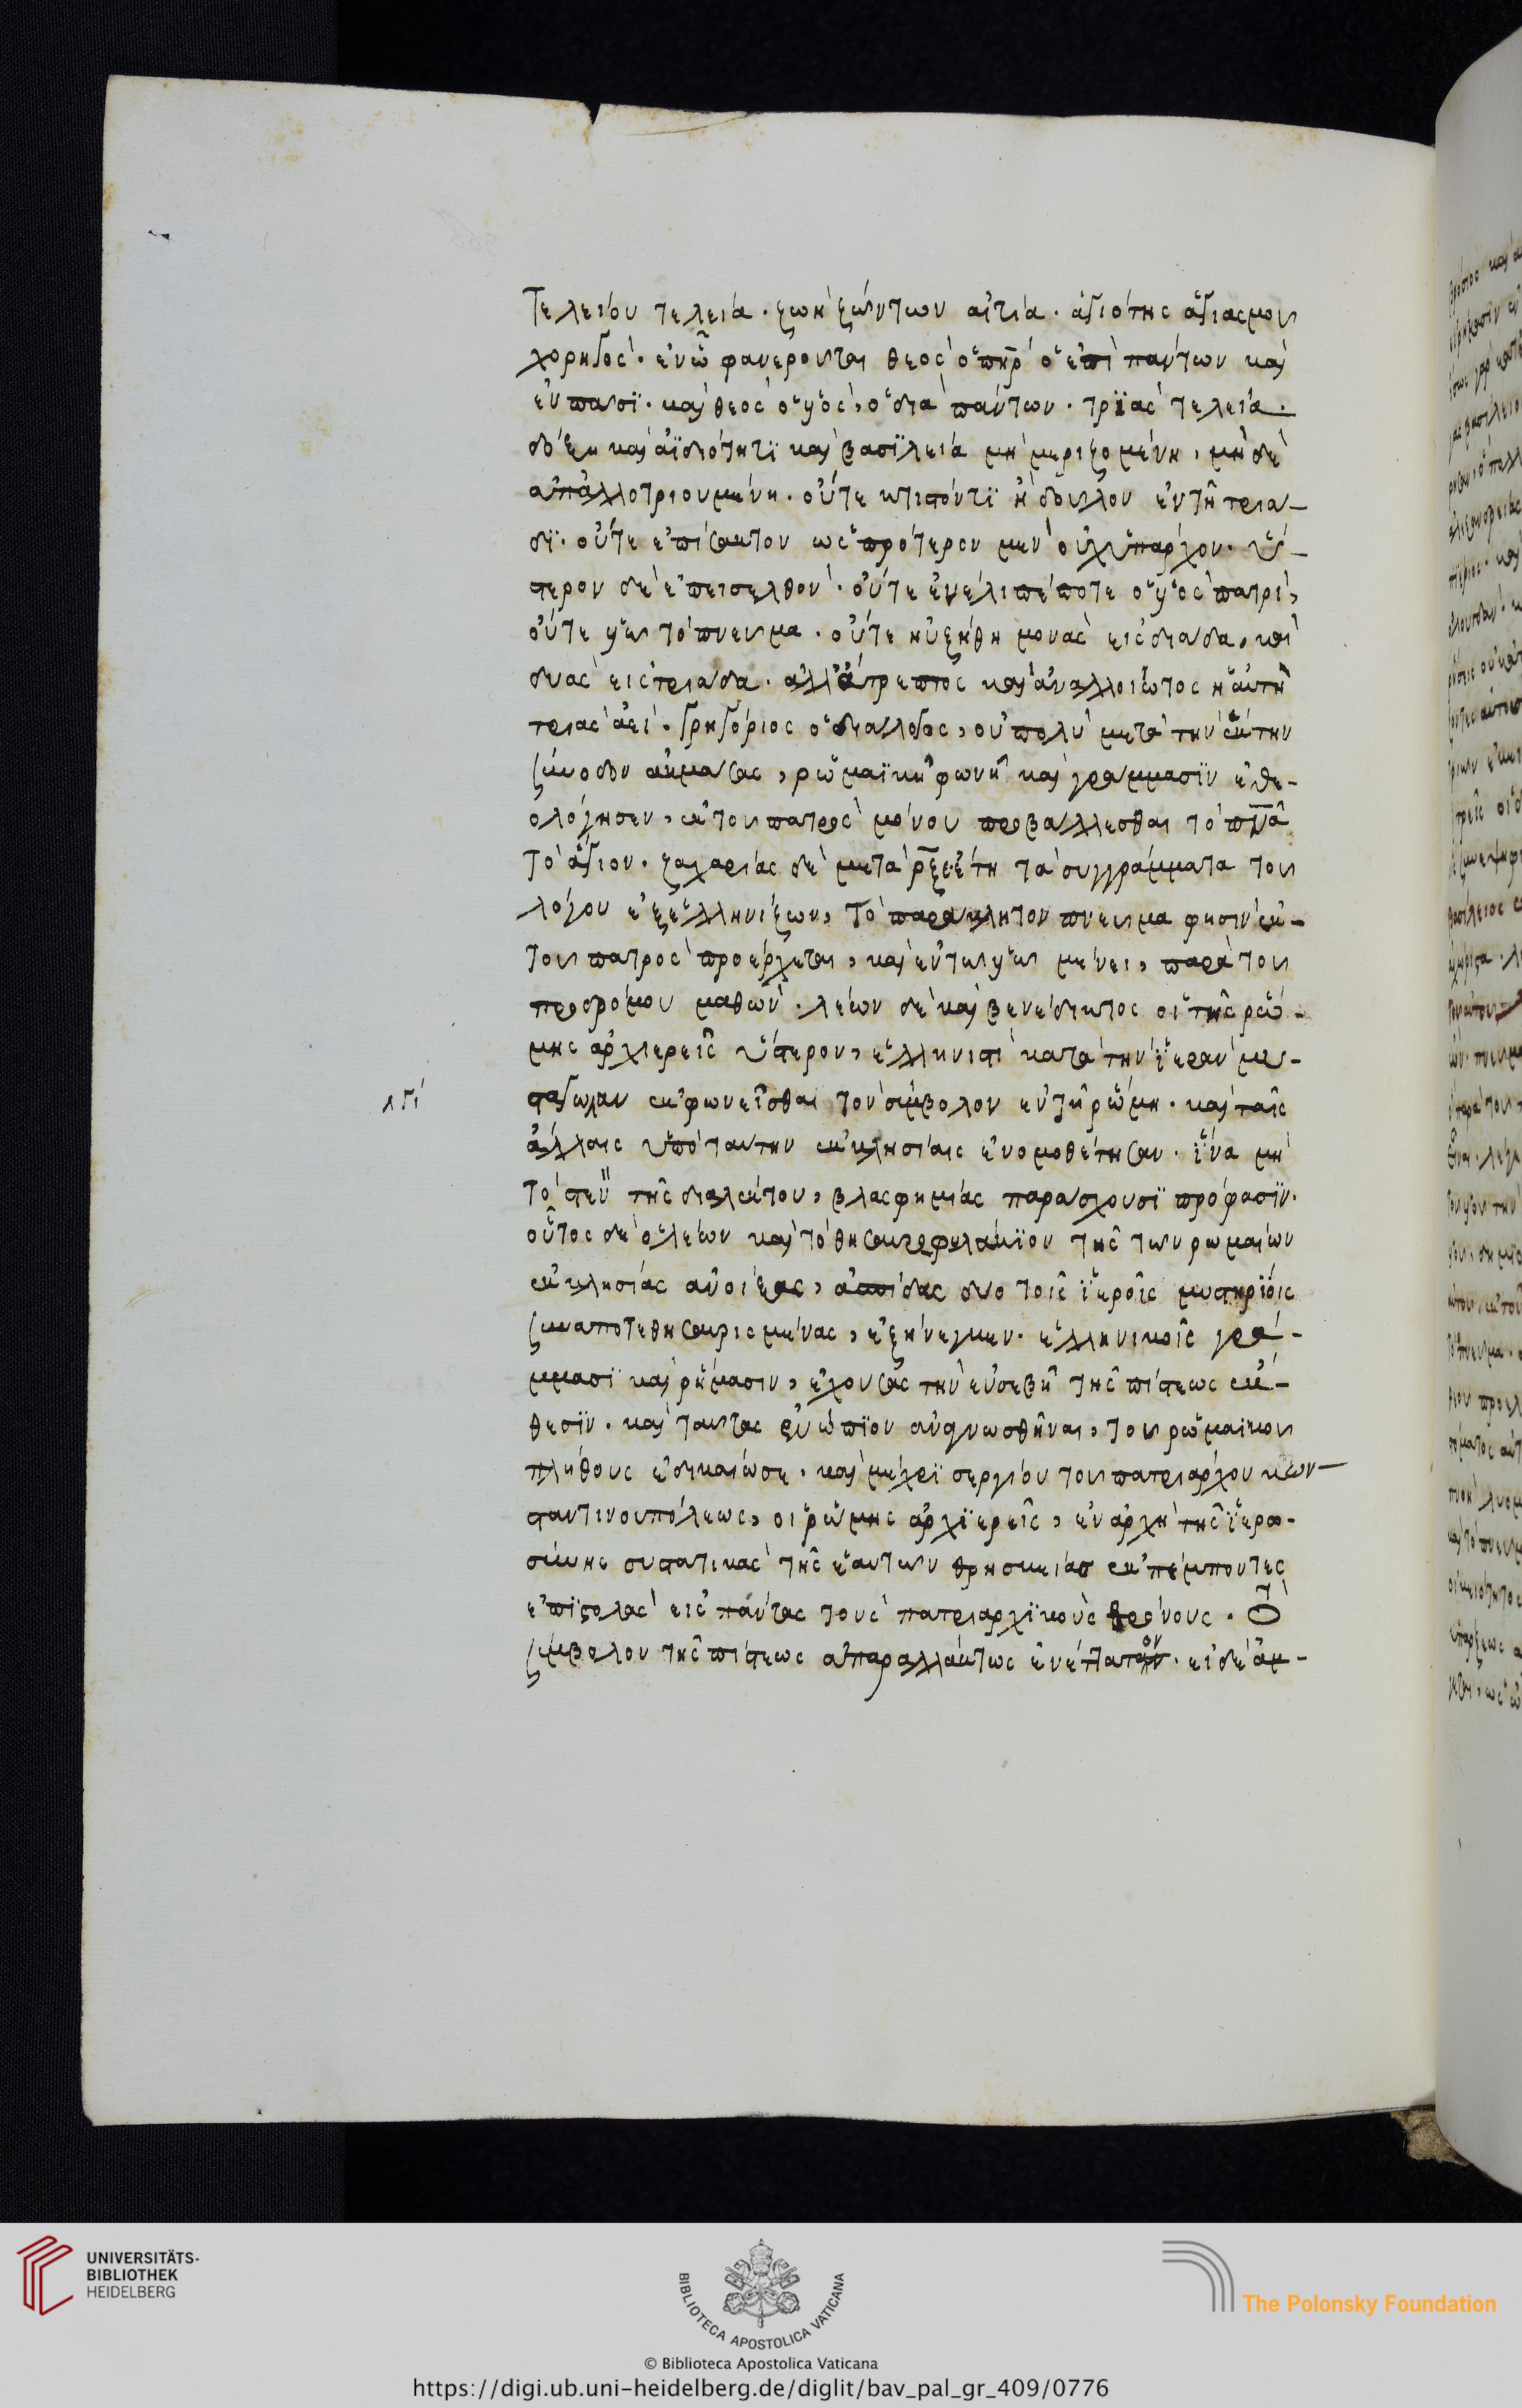 Τελείου τελεία. ζωὴ ζώντων αἰτία. ἁγιότης ἁγιασμοῦ
χορηγὸς. ἐνῶ φανεροῦται θεὸς ὁ πηρ ὁ ἐπὶ πάντων καὶ
ἐν πασϊ. καὶ θεὸς ὁ υἱὸς, ὁ διὰ πάντων. τρϊὰς τελεία.
δόξη καὶ ἀϊδιότητϊ καὶ βασϊλεία μὴ μεριζομένη, μὴ δὲ
ἀπαλλοτριουμένη. οὔτε κτιστόντϊ ἢ δοῦλον ἐν τῆ τριά-
δϊ. οὔτε ἐπίσακτον ὡς πρότερον μὲν οὐχ ὑπάρχον. ὕ-
στερον δὲ ἐπεισελθὸν. οὔτε ἐνέλιπέ ποτε ὁ υἱὸς πατρὶ,
οὔτε υἱῶ τὸ πνεῦμα. οὔτε ηὐξήθη μονὰς εἰς δυάδα, καὶ
δυὰς εἰς τριάδα. ἀλλ' ἄτρεπτος καὶ ἀναλλοίωτος ἡ αὐτὴ
τριὰς ἀεί. Γρηγόριος ὁ διάλογος, οὐ πολὺ μετὰ τὴν ἕκτην
σύνοδον ἀκμάσας, ῥωμαϊκῆ φωνῆ καὶ γράμμασϊν ἐθε-
ολόγησεν, ἐκ τοῦ πατρὸς μόνου προβάλλεσθαι τὸ πνα
τὸ ἅγιον. ζαχαρίας δὲ μετὰ ρξε ἔτη τὰ συγγράμματα τοῦ
λόγου ἐξελληνίζων, Τὸ παράκλητον πνεῦμα φησὶν ἐκ
τοῦ πατρὸς προέρχεται, καὶ ἐν τῶ υἱῶ μένει, παρὰ τοῦ
προδρόμου μαθὼν. λέων δὲ καὶ βενέδικτος οἱ τῆς ῥώ-
μης ἀρχιερεῖς ὕστερον, ἑλληνιστὶ κατὰ τὴν ἱερὰν μυ-
σταγωγίαν ἐκφωνεῖσθαι τὸν σύμβολον ἐν τῆ ῥώμη. καὶ ταῖς
ἄλλαις ὑπὸ ταύτην ἐκκλησίαις ἐνομοθέτησαν. ἵνα μὴ
τὸ στενὸν τῆς διαλέκτου, βλασφημίας παράσχουσϊ πρόφασϊν.
οὗτος δὲ ὁ λέων καὶ τὸ θησαυροφυλάκϊον τῆς τῶν ῥωμαίων
ἐκκλησίας ἀνοίξας, ἀσπίδας δύο τοῖς ἱεροῖς μυστηρϊοις
συναποτεθησαυρισμένας, ἐξήνεγκεν. ἑλληνικοῖς γρά-
μμασϊ καὶ ῥήμασιν, ἐχούσας τὴν εὐσεβῆ τῆς πίστεως ἔκ-
θεσϊν. καὶ ταύτας ἐνώπϊον ἀναγνωσθῆναι, τοῦ ῥωμαϊκοῦ
πλήθους ἐδικαίωσε. καὶ μέχρϊ σεργίου τοῦ πατριάρχου κων-
σταντινουπόλεως, οἱ ῥώμης ἀρχϊερεῖς, ἐν ἀρχῆ τῆς ἱερω-
σύνης συστατικὰς τῆς ἑαυτῶν θρησκείας ἐκπέμποντες
ἐπϊστολὰς εἰς πάντας τοὺς πατριαρχϊκοὺς θρόνους. τὸ
σύμβολον τῆς πίστεως ἀπαραλλάκτως ἐνέταττον. εἰ δὲ ἀμ-